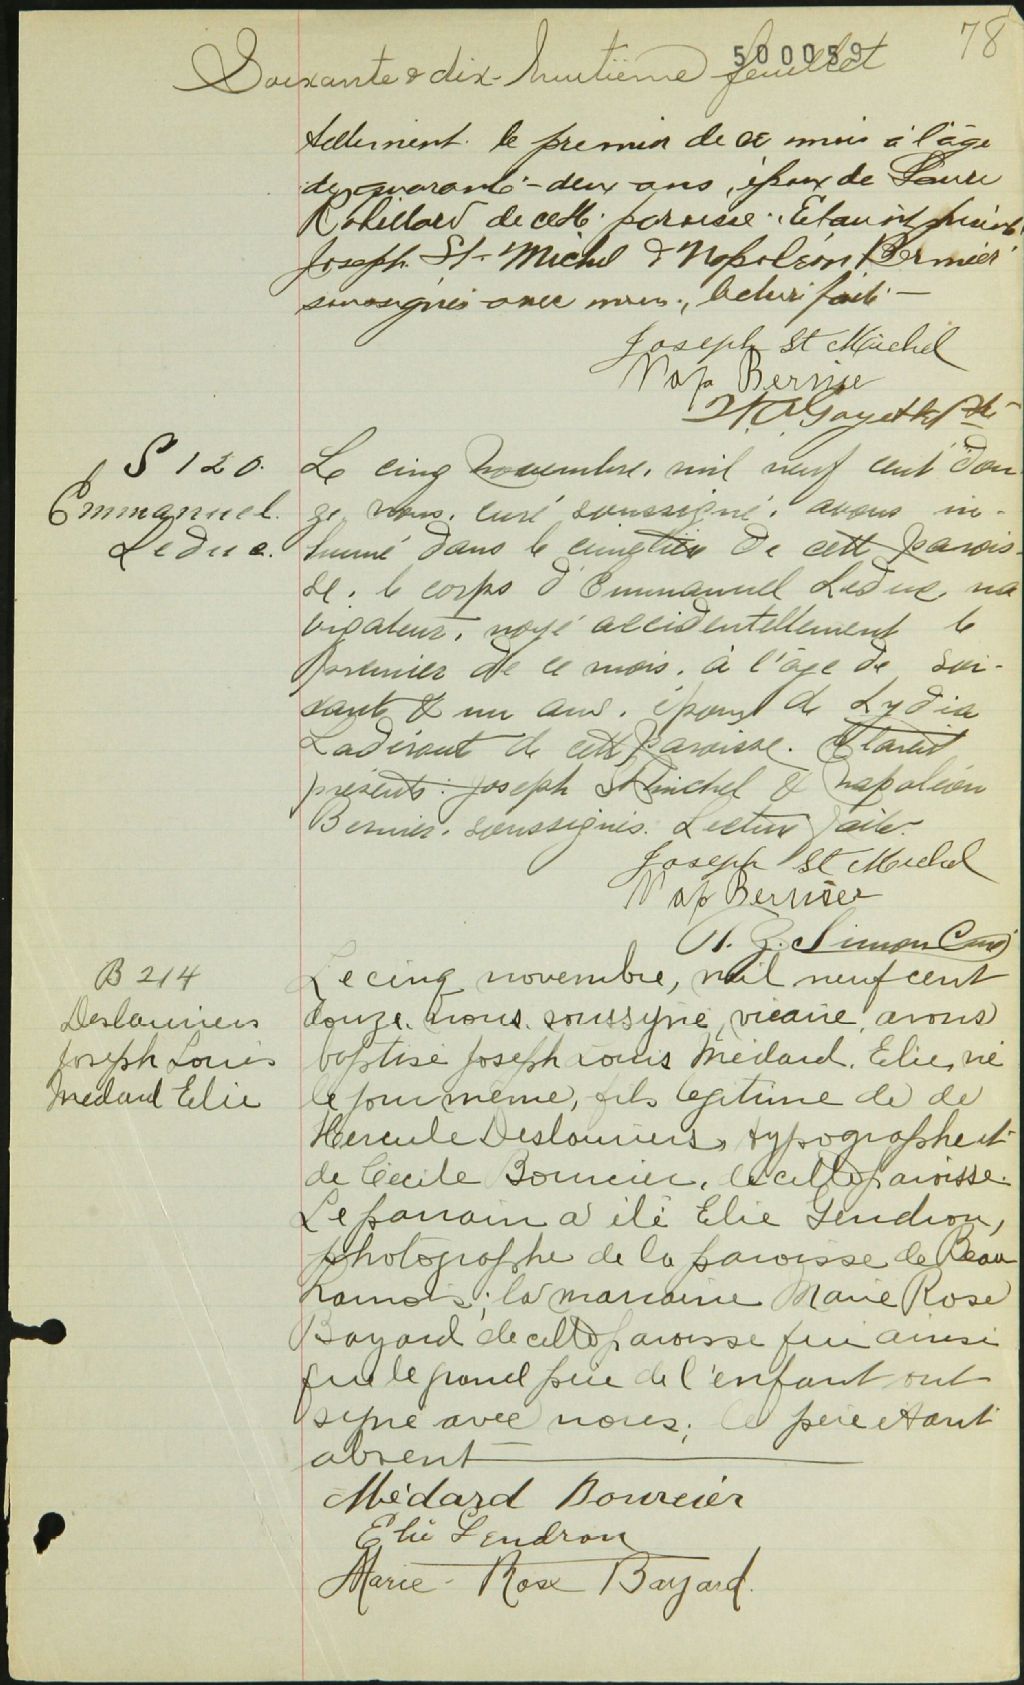 78
500059
Soixante & dix-huitième feuillet
tellement le premier de ce mois à l'âge
de quarante-deux ans, époux de Laura
Robillard de cette paroisse. Etaient présents
Joseph St-Michel & Napoléon Bernier
soussignés avec nous, lecture faite.—
Joseph St Michel
Nap Bernier
Ptre
S 120.
Emmanuel
Leduc.
Le cinq novembre, mil neuf cent dou-
ze, nous, curé soussigné, avons in-
humé dans le cimetière de cette parois-
se, le corps d'Emmanuel Leduc, na
vigateur, noyé accidentellement le
premier de ce mois, à l'âge de soi-
xante & un ans, époux de Lydia
Ladérout de cette paroisse. Etaient
présents: Joseph St Michel & Napoléon
Bernier, soussignés. Lecture faite.
Joseph St Michel
Nap Bernier
Simon Curé
B 214
Deslauriers
Joseph Louis
Médard Elie
Le cinq novembre, mil neuf cent
douze, nous, soussigné, vicaire, avons
baptisé Joseph Louis Médard, Elie, né
le jour même, fils légitime de de
Hercule Deslauriers, typographe et
de Cécile Bourcier, de cette paroisse.
Le parrain a été Elie Gendron,
photographe de la paroisse de Beau
harnois; la marraine Marie Rose
Bayard de cette paroisse qui ainsi
que le grand père de l'enfant ont
signé avec nous; le père étant
absent
Médard Bourcier
Elie Gendron
Marie-Rose Bayard.